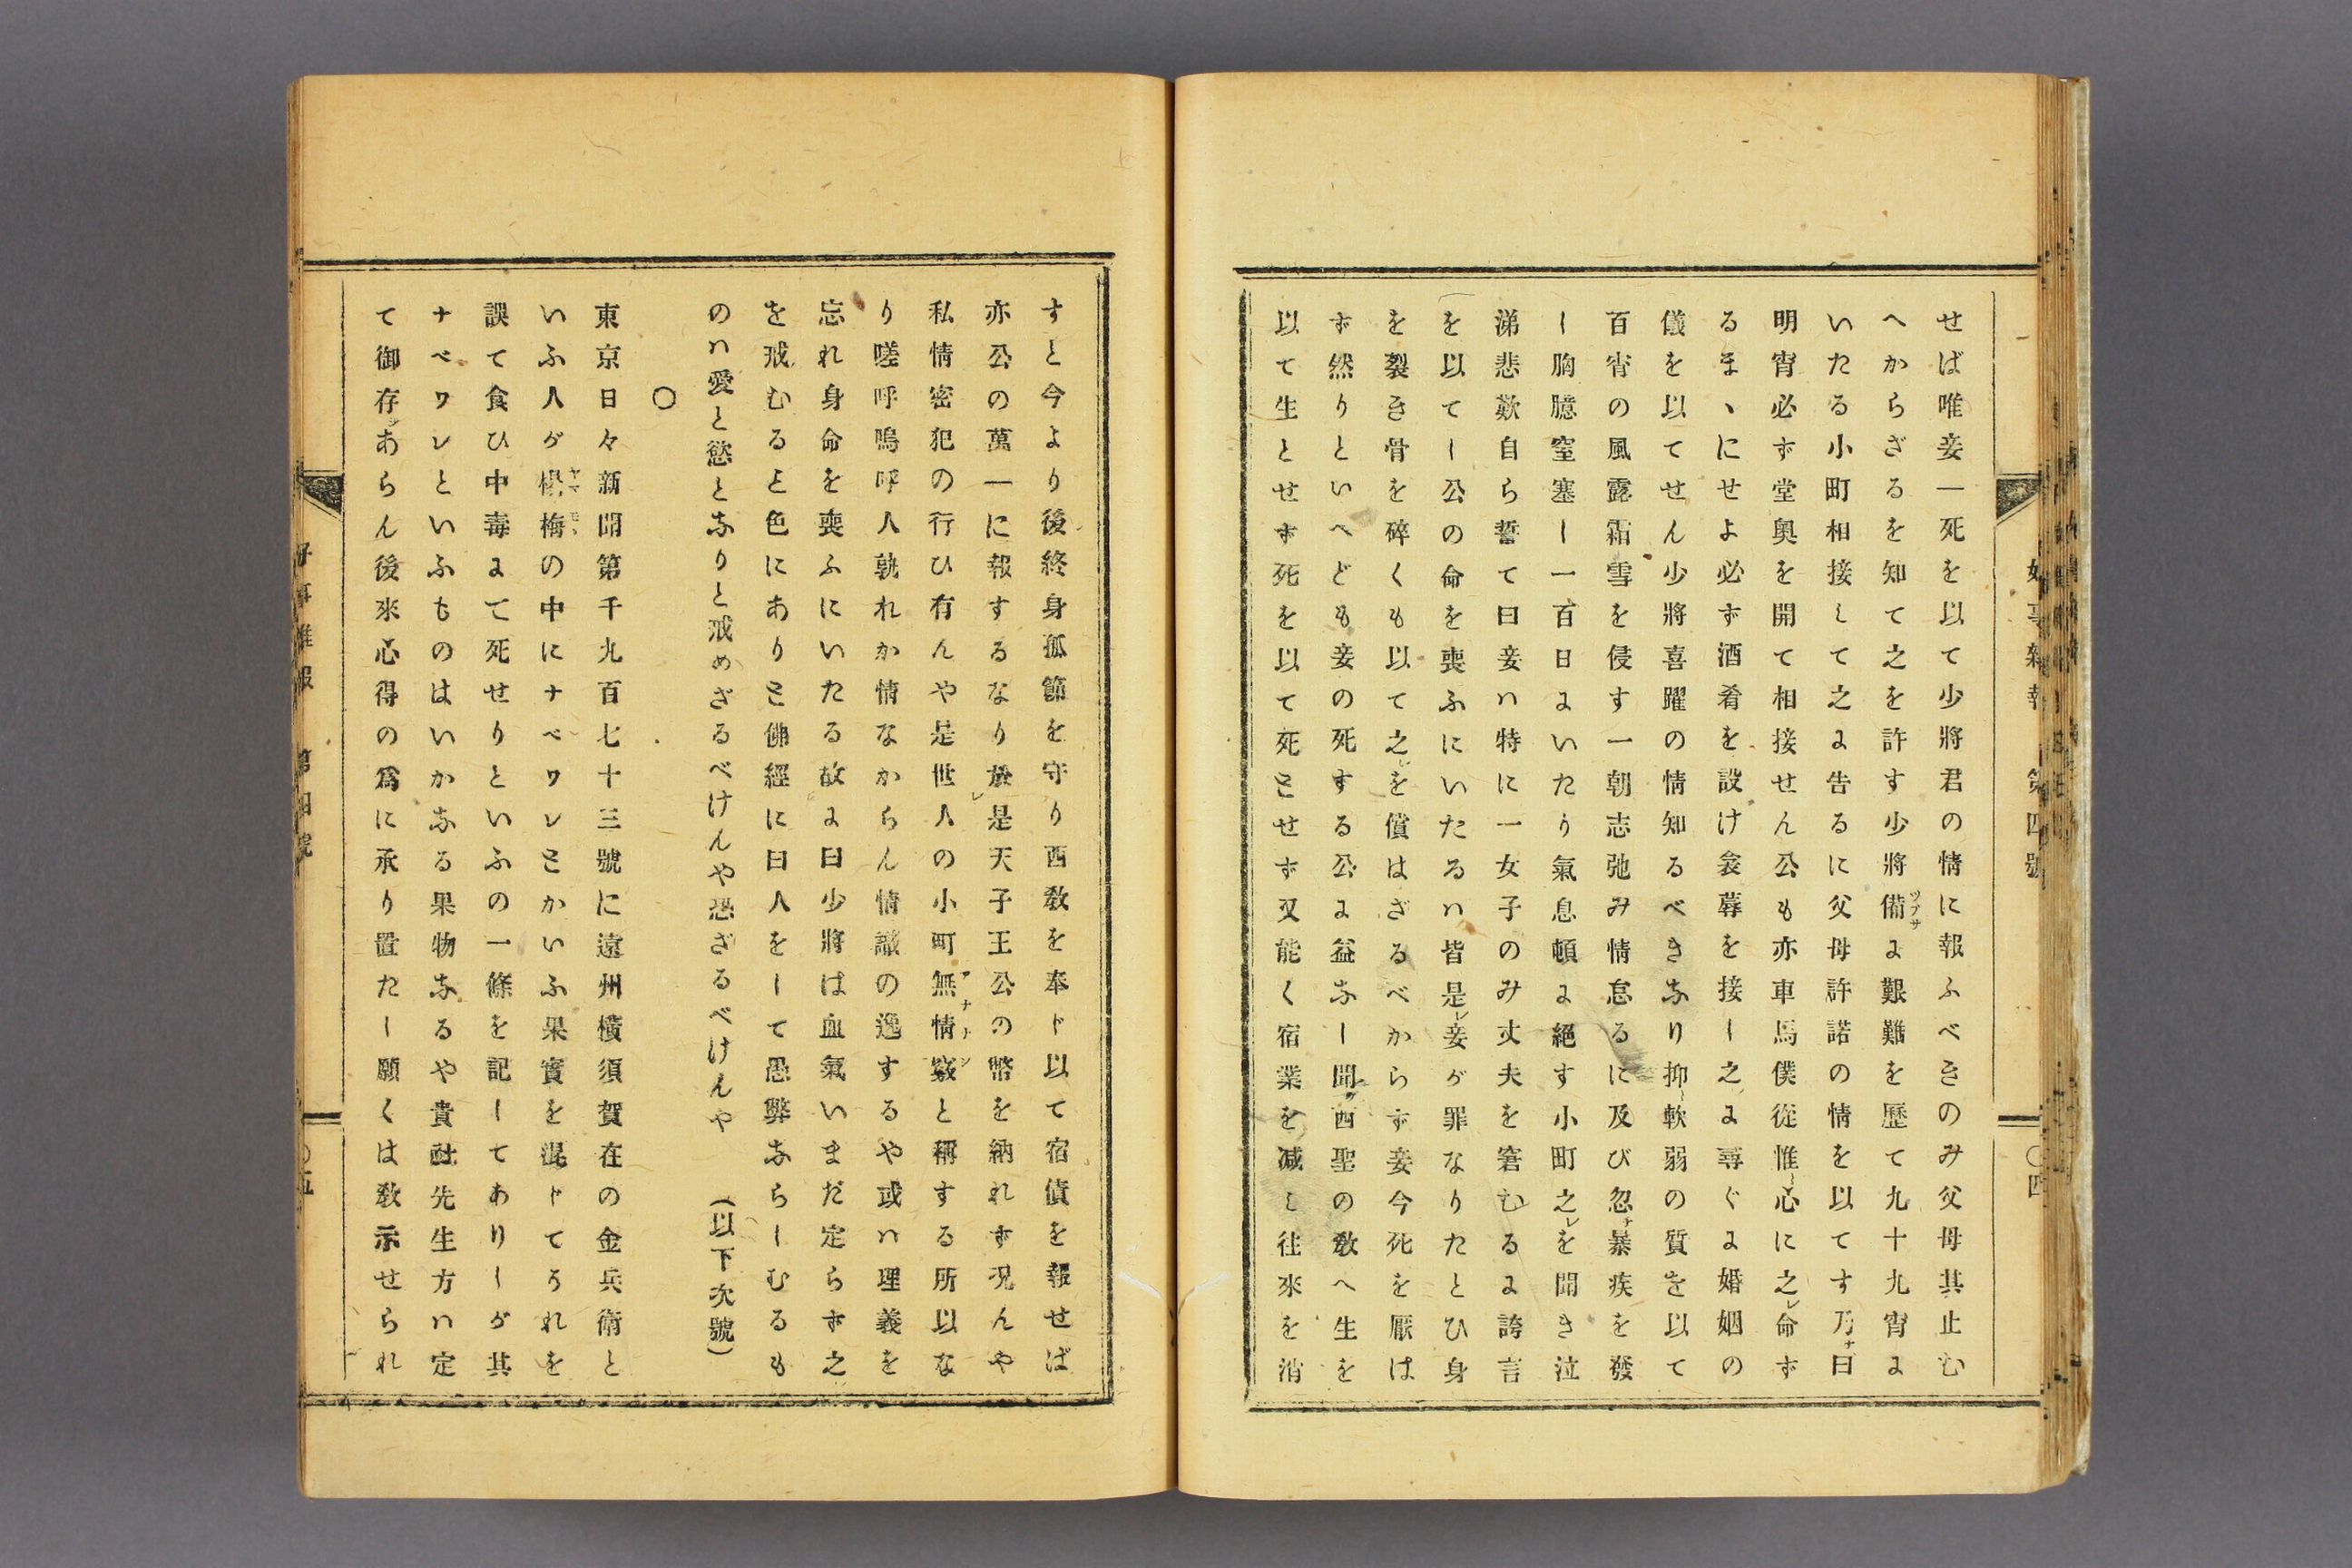 せば唯妾一死を以て少將君の情に報ふべきのみ父母其止む
へからざるを知て之を許す少將備ツブサに艱難を歷て九十九宵に
いたる小町相接して之に告るに父母許諾の情を以てす乃チ曰
明宵必ず堂奧を開て相接せん公も亦車馬僕從惟心に之レ命ず
るまゝにせよ必ず酒肴を設け衾蓐を接し之に尋ぐに婚姻の
儀を以てせん少將喜躍の情知るべきなり抑軟弱の質を以て
百宵の風露霜雪を侵す一朝志弛み情怠るに及び忽チ暴疾を發
し胸臆窒塞し一百日にいたり氣息頓に絕す小町之レを聞き泣
涕悲歎自ら誓て曰妾ハ特に一女子のみ丈夫を窘むるに誇言
を以てし公の命を喪ふにいたるハ皆是レ妾が罪なりたとひ身
を裂き骨を碎くも以て之レを償はざるべからず妾今死を厭は
ず然りといへども妾の死する公に益なし聞ク西聖の敎へ生を
以て生とせず死を以て死とせず又能く宿業を减し往來を消
すと今より後終身孤節を守り西敎を奉ド以て宿債を報せば
亦公の萬一に報するなり於レ是天子王公の幣を納れず况んや
私情密犯の行ひ有んや是世人の小町無情竅アナナシと稱する所以な
り嗟呼嗚呼人孰れか情なからん情識の逸するや或ハ理義を
忘れ身命を喪ふにいたる故に曰少將は血氣いまだ定らず之
を戒むると色にありと佛經に曰人をして愚弊ならしむるも
のハ愛と慾となりと戒めざるべけんや恐ざるべけんや　（以下次號）
〇
東京日々新聞第千九百七十三號に遠州橫須賀在の金兵衛と
いふ人が楊梅ヤマモヽの中にナベワレとかいふ果實を混ドてうれを
誤て食ひ中毒にて死せりといふの一條を記してありしが其
ナベワレといふものはいかなる果物なるや貴社先生方ハ定
て御存シあらん後來心得の爲に承り置たし願くは敎示せられ
第四號
〇四